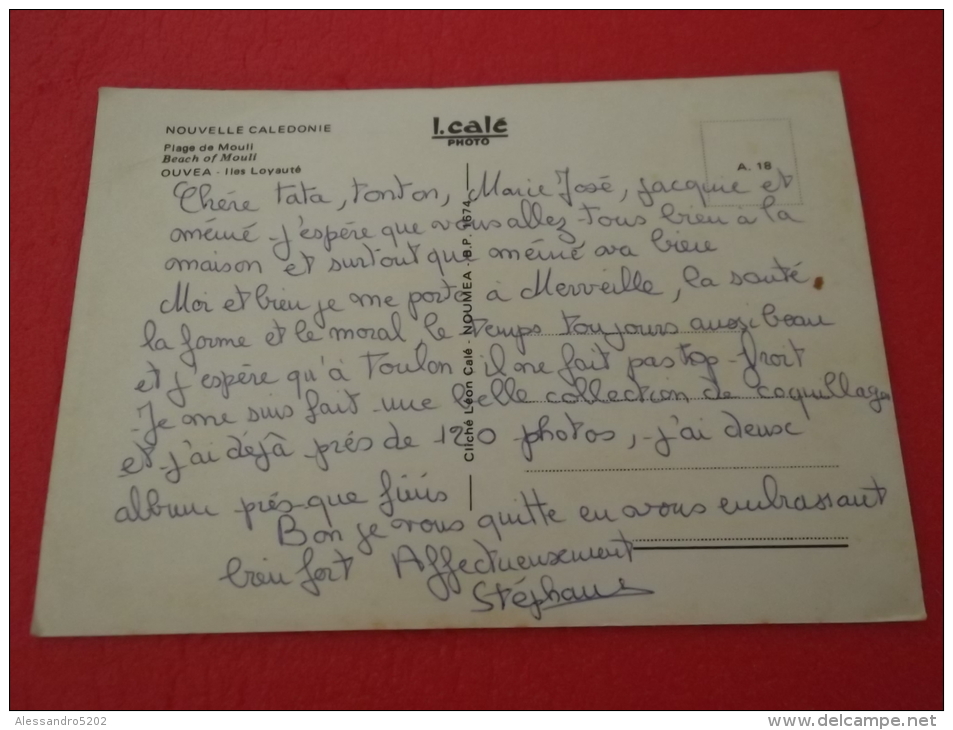 NOUVELLE CALEDONIE
Plage de Mouli
Beach of Mouli
OUVEA - Iles Loyauté
l.calé
PHOTO
A. 18
Cliché Léon Calé - NOUMEA - B.P. 1674
Chére tata, tonton, Marie José, jacquie et
mémé - j'espère que vous allez tous bien à la
maison et surtout que mémé va bien
Moi et bien je me porte à Merveille, la santé
la forme et le moral, le temps toujours aussi beau
et j'espère qu'à Toulon il ne fait pas trop froit
Je me suis fait une belle collection de coquillages
et j'ai déjà prés de 120 photos, j'ai deux
album prés que finis
Bon je vous quitte en vous embrassant
bien fort Affectueusement
Stéphane
Alessandro5202
www.delcampe.net